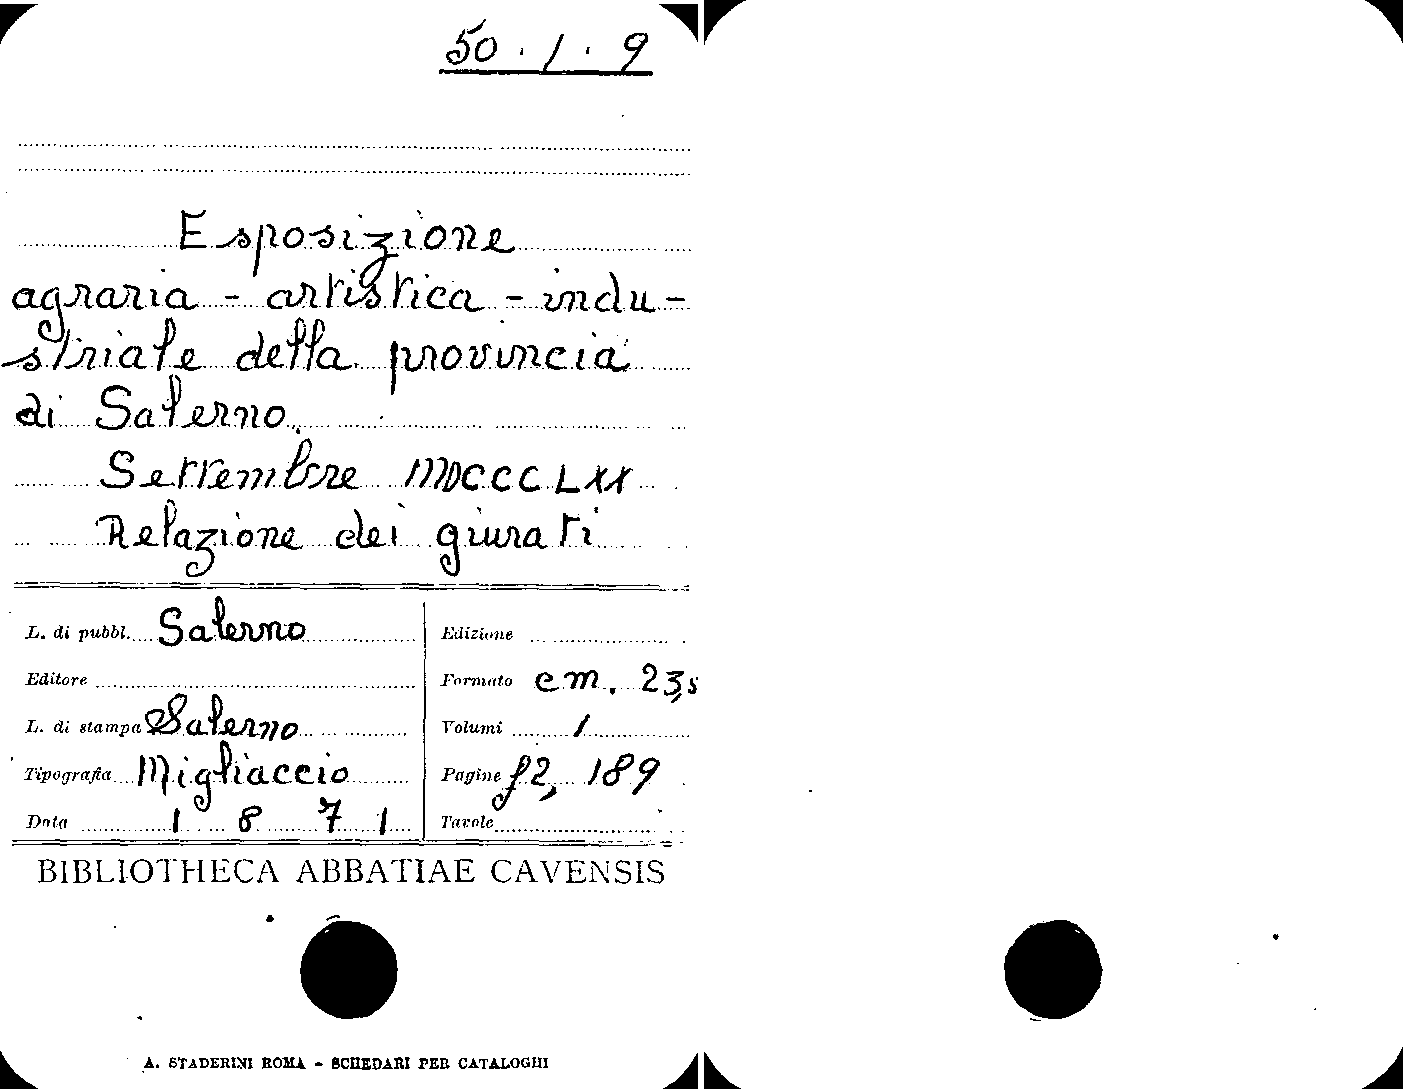 50.1.9
Esposizione
agraria - artistica - indu-
striale della provincia
di Salerno.
Settembre MDCCCLXX
Relazione dei giurati
L. di pubbl. Salerno
Editore
L. di stampa Salerno
Tipografia Migliaccio
Data 1871
Edizione
Formato cm. 23,5
Volumi 1
Pagine f2, 189
Tavole
BIBLIOTHECA ABBATIAE CAVENSIS
A. STADERINI ROMA - SCHEDARI PER CATALOGHI